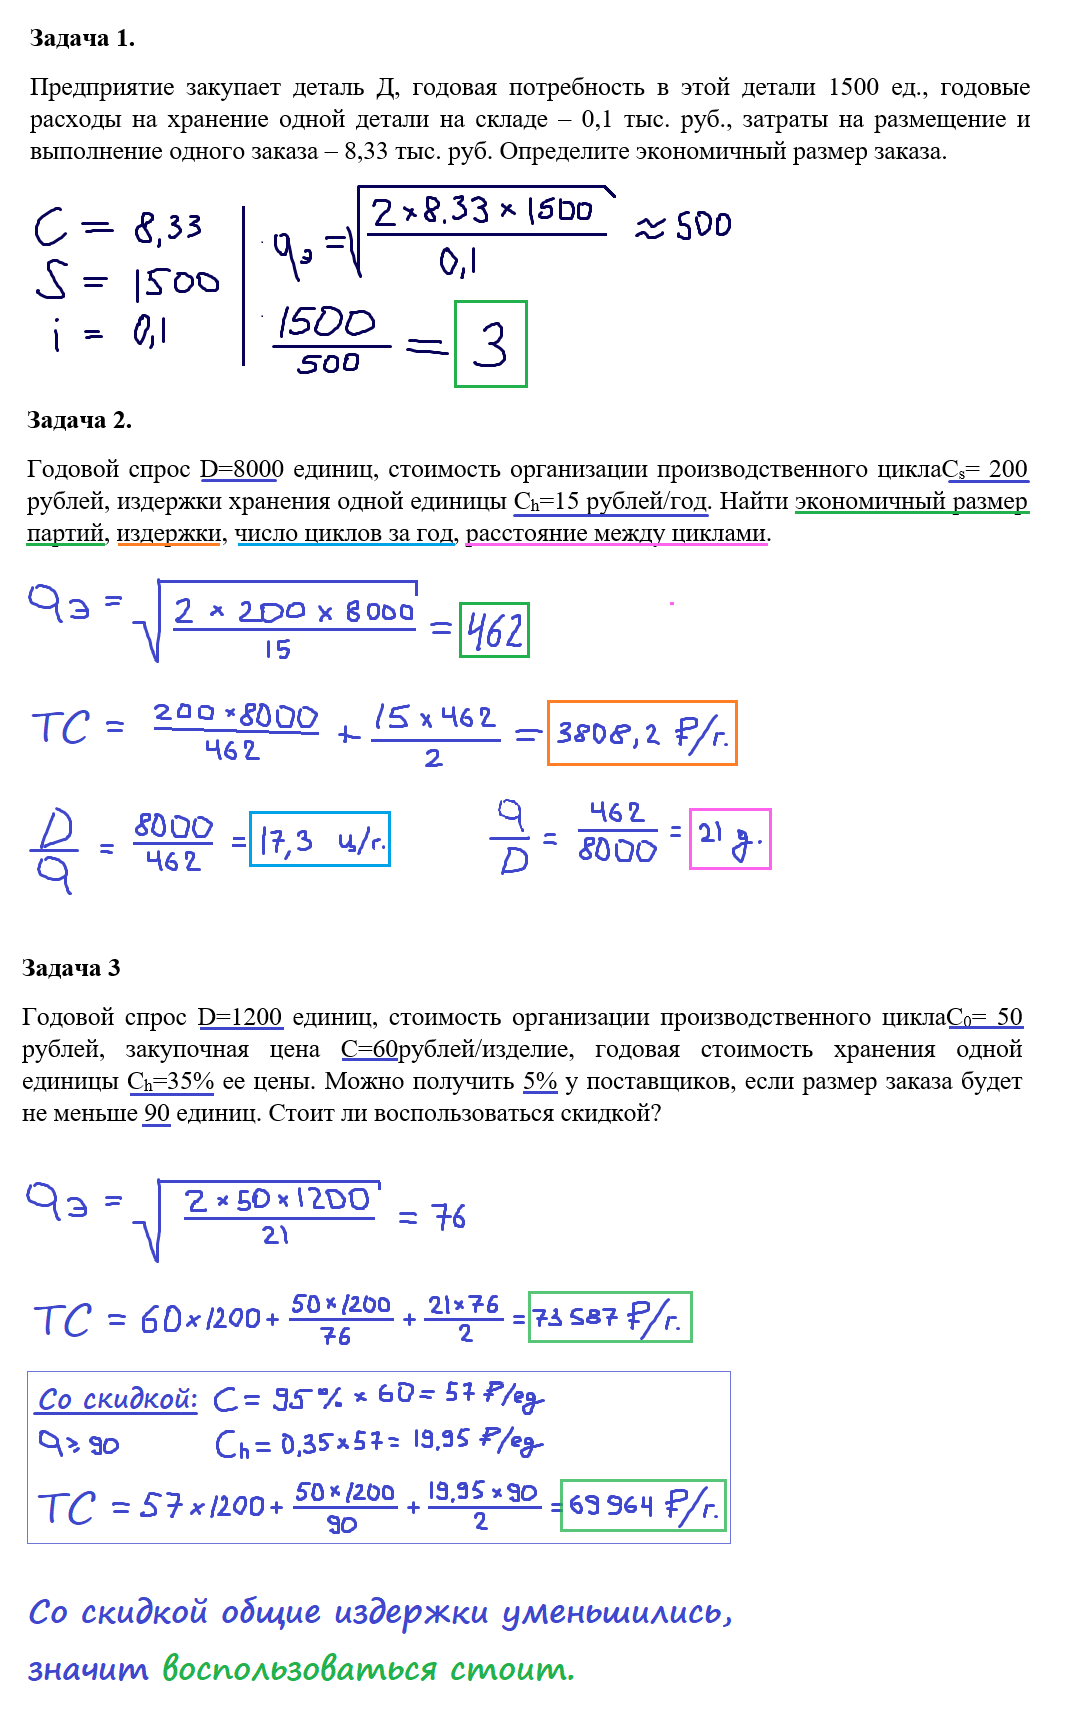 Задача 1.
Предприятие закупает деталь Д, годовая потребность в этой детали 1500 ед., годовые
расходы на хранение одной детали на складе – 0,1 тыс. руб., затраты на размещение и
выполнение одного заказа – 8,33 тыс. руб. Определите экономичный размер заказа.
C = 8,33
S = 1500
i = 0,1
qэ = √(2 × 8.33 × 1500 / 0,1) ≈ 500
1500 / 500 = 3
Задача 2.
Годовой спрос D=8000 единиц, стоимость организации производственного циклаCs= 200
рублей, издержки хранения одной единицы Ch=15 рублей/год. Найти экономичный размер
партий, издержки, число циклов за год, расстояние между циклами.
qэ = √(2 × 200 × 8000 / 15) = 462
TC = 200 × 8000 / 462 + 15 × 462 / 2 = 3808,2 ₽/г.
D / q = 8000 / 462 = 17,3 ц/г.
q / D = 462 / 8000 = 21 д.
Задача 3
Годовой спрос D=1200 единиц, стоимость организации производственного циклаC0= 50
рублей, закупочная цена C=60рублей/изделие, годовая стоимость хранения одной
единицы Ch=35% ее цены. Можно получить 5% у поставщиков, если размер заказа будет
не меньше 90 единиц. Стоит ли воспользоваться скидкой?
qэ = √(2 × 50 × 1200 / 21) = 76
TC = 60 × 1200 + 50 × 1200 / 76 + 21 × 76 / 2 = 73 587 ₽/г.
Со скидкой: C = 95% × 60 = 57 ₽/ед
q ≥ 90 Ch = 0,35 × 57 = 19,95 ₽/ед
TC = 57 × 1200 + 50 × 1200 / 90 + 19,95 × 90 / 2 = 69 964 ₽/г.
Со скидкой общие издержки уменьшились,
значит воспользоваться стоит.